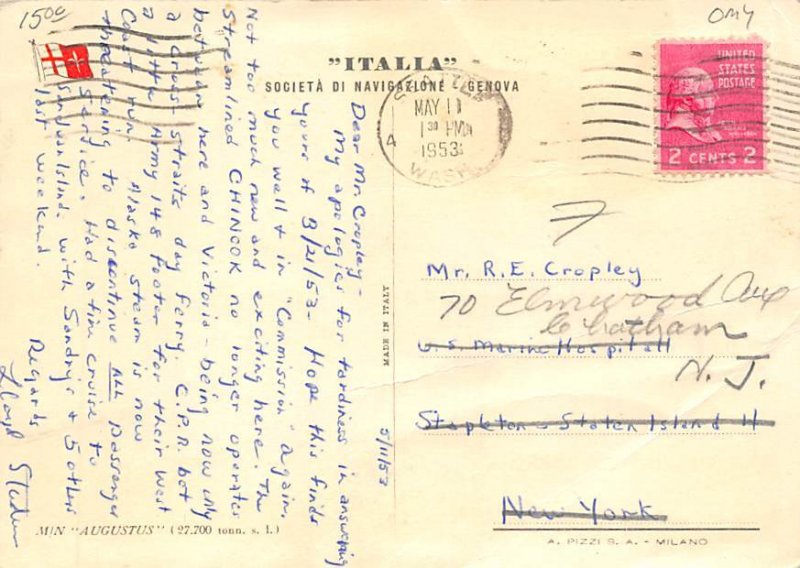 1500
OMY
"ITALIA"
SOCIETÀ DI NAVIGAZIONE GENOVA
MAY 11
1 30 PM
1953
WASH.
4
UNITED
STATES
POSTAGE
2 CENTS 2
Dear Mr. Cropley-
My apologies for tardiness in answering
yours of 3/21/53- Hope this finds
you well & in "Commission" again.
Not too much new and exciting here. The
Streamlined CHINOOK no longer operates
between here and Victoria - being now only
a cross-straits day ferry. C.P.R. bot
a little Army 148 footer for their West
Coast run. Alaska Steam is now
threatening to discontinue ALL passenger
Service. Had a fine cruise to
San Juan Islands with Sandry's & 5 others
last weekend.
Regards
Lloyd
5/11/53
MADE IN ITALY
Mr. R.E. Cropley
70 Elmwood Ave
Chatham
U.S. Marine Hospital
N. J.
Stapleton - Staten Island
New York
M/N "AUGUSTUS" (27.700 tonn. s. l.)
A. PIZZI S. A. - MILANO